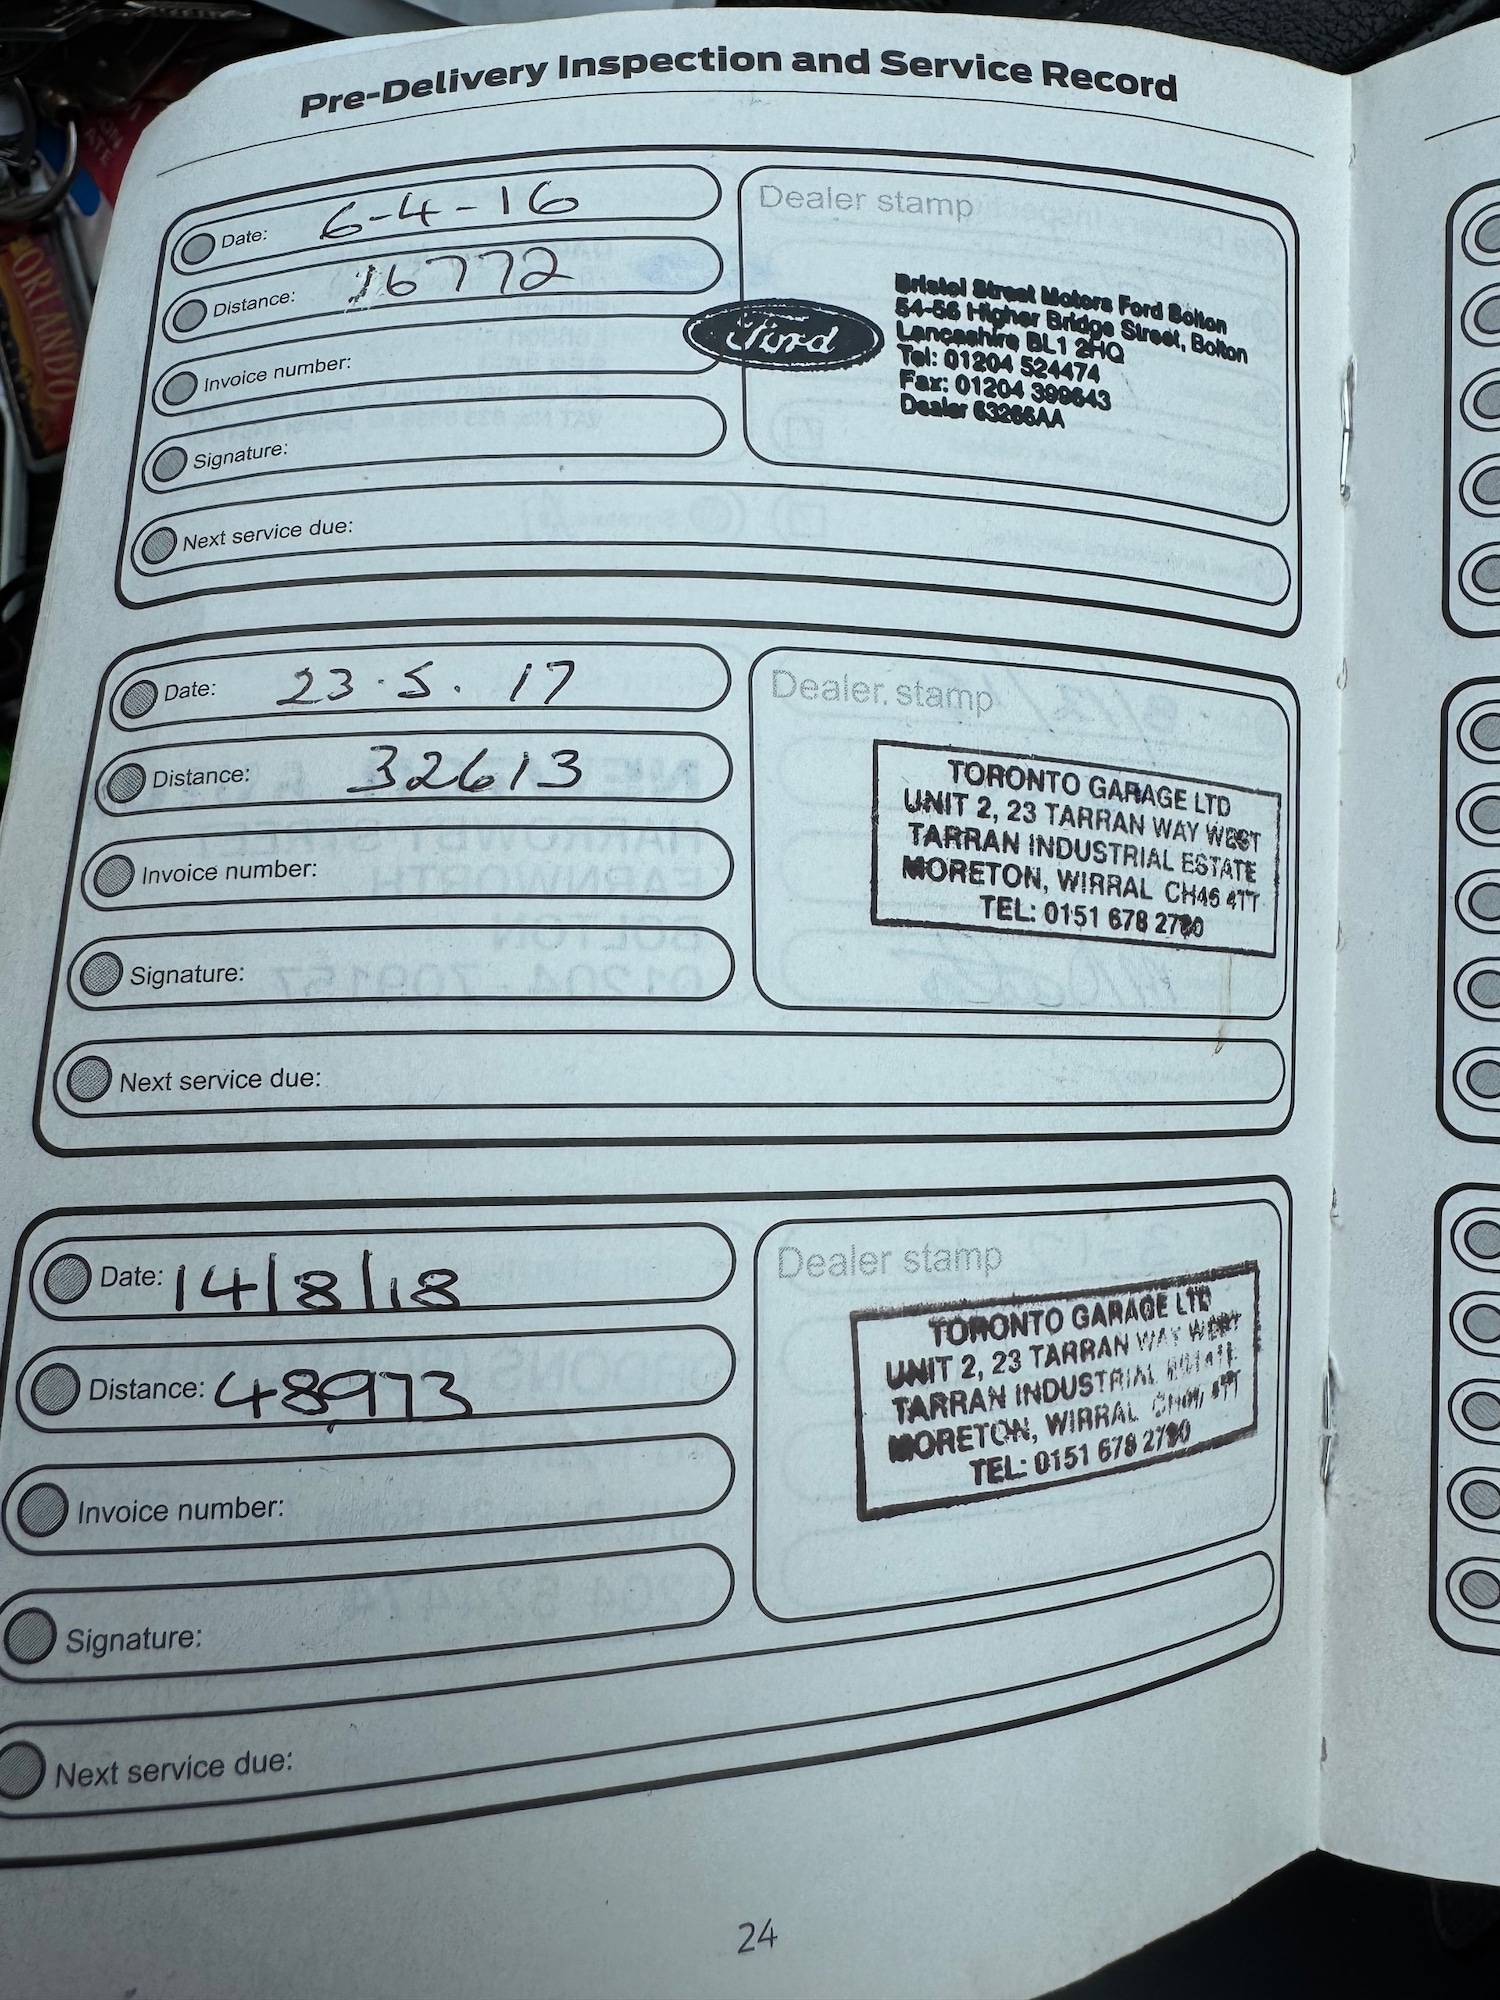 Pre-Delivery Inspection and Service Record
Date: 6-4-16
Distance: 16772
Invoice number:
Signature:
Next service due:
Dealer stamp
Ford
Bristol Street Motors Ford Bolton
54-56 Higher Bridge Street, Bolton
Lancashire BL1 2HQ
Tel: 01204 524474
Fax: 01204 399643
Dealer 63266AA
Date: 23.5.17
Distance: 32613
Invoice number:
Signature:
Next service due:
Dealer stamp
TORONTO GARAGE LTD
UNIT 2, 23 TARRAN WAY WEST
TARRAN INDUSTRIAL ESTATE
MORETON, WIRRAL CH46 4TT
TEL: 0151 678 2780
Date: 14/8/18
Distance: 48973
Invoice number:
Signature:
Next service due:
Dealer stamp
TORONTO GARAGE LTD
UNIT 2, 23 TARRAN WAY WEST
TARRAN INDUSTRIAL ESTATE
MORETON, WIRRAL CH46 4TT
TEL: 0151 678 2780
24
ORLANDO